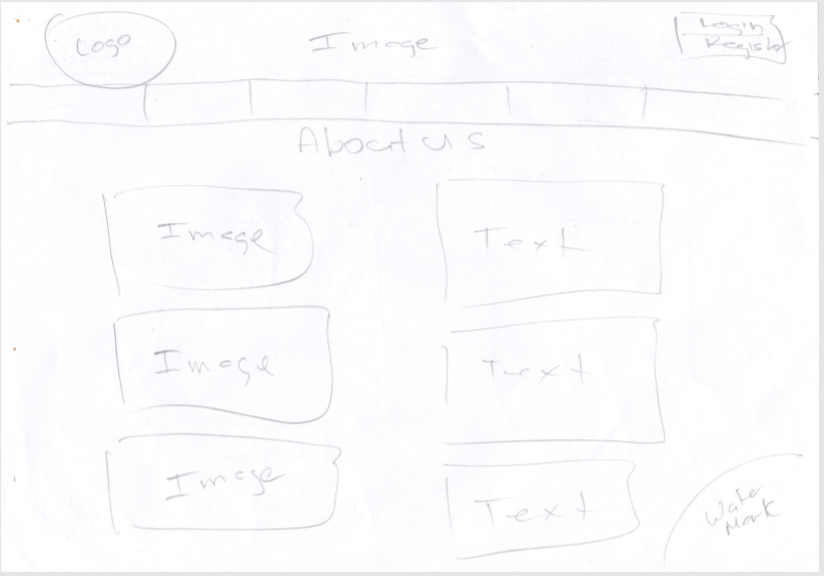 Logo
Image
Login
Register
About us
Image
Text
Image
Text
Image
Text
Water
Mark